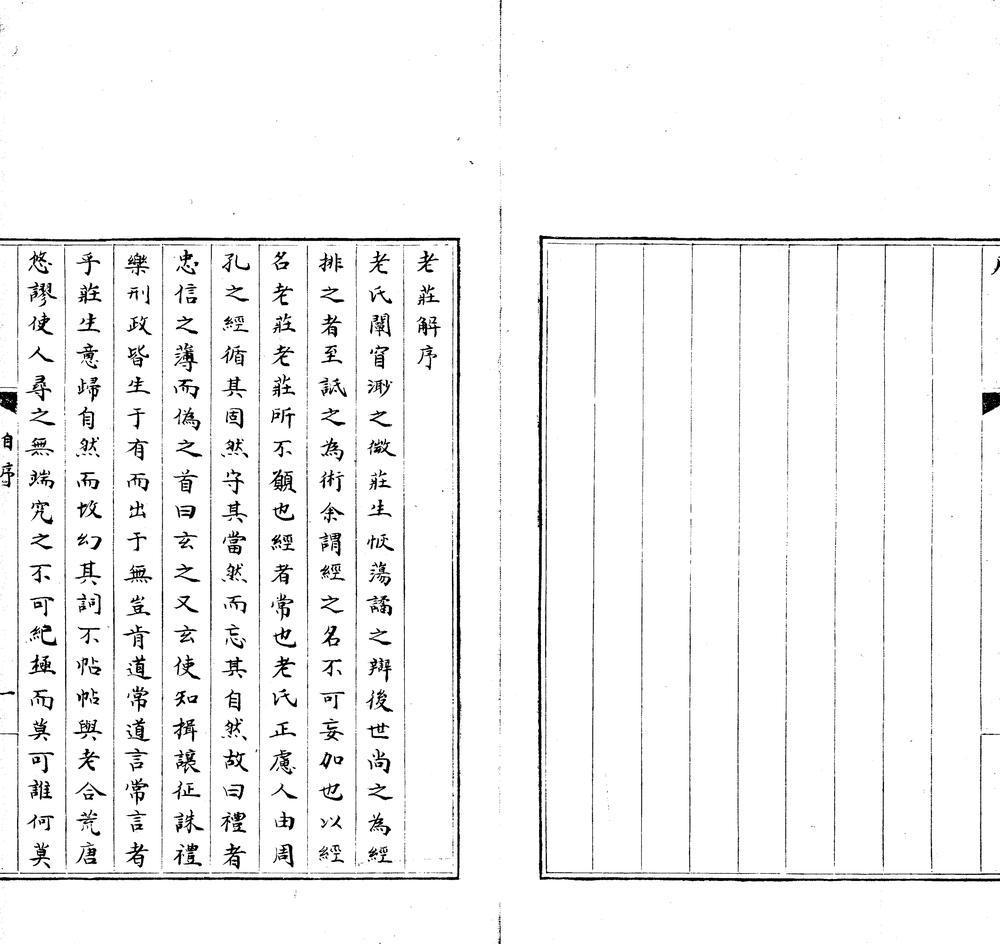 老莊解序
老氏闡窅渺之微莊生恢蕩譎之辯後世尚之為經
排之者至詆之為術余謂經之名不可妄加也以經
名老莊老莊所不願也經者常也老氏正慮人由周
孔之經循其固然守其當然而忘其自然故曰禮者
忠信之薄而偽之首曰玄之又玄使知揖讓征誅禮
樂刑政皆生于有而出于無豈肯道常道言常言者
乎莊生意歸自然而故幻其詞不帖帖與老合荒唐
悠謬使人尋之無端究之不可紀極而莫可誰何莫
自序
一